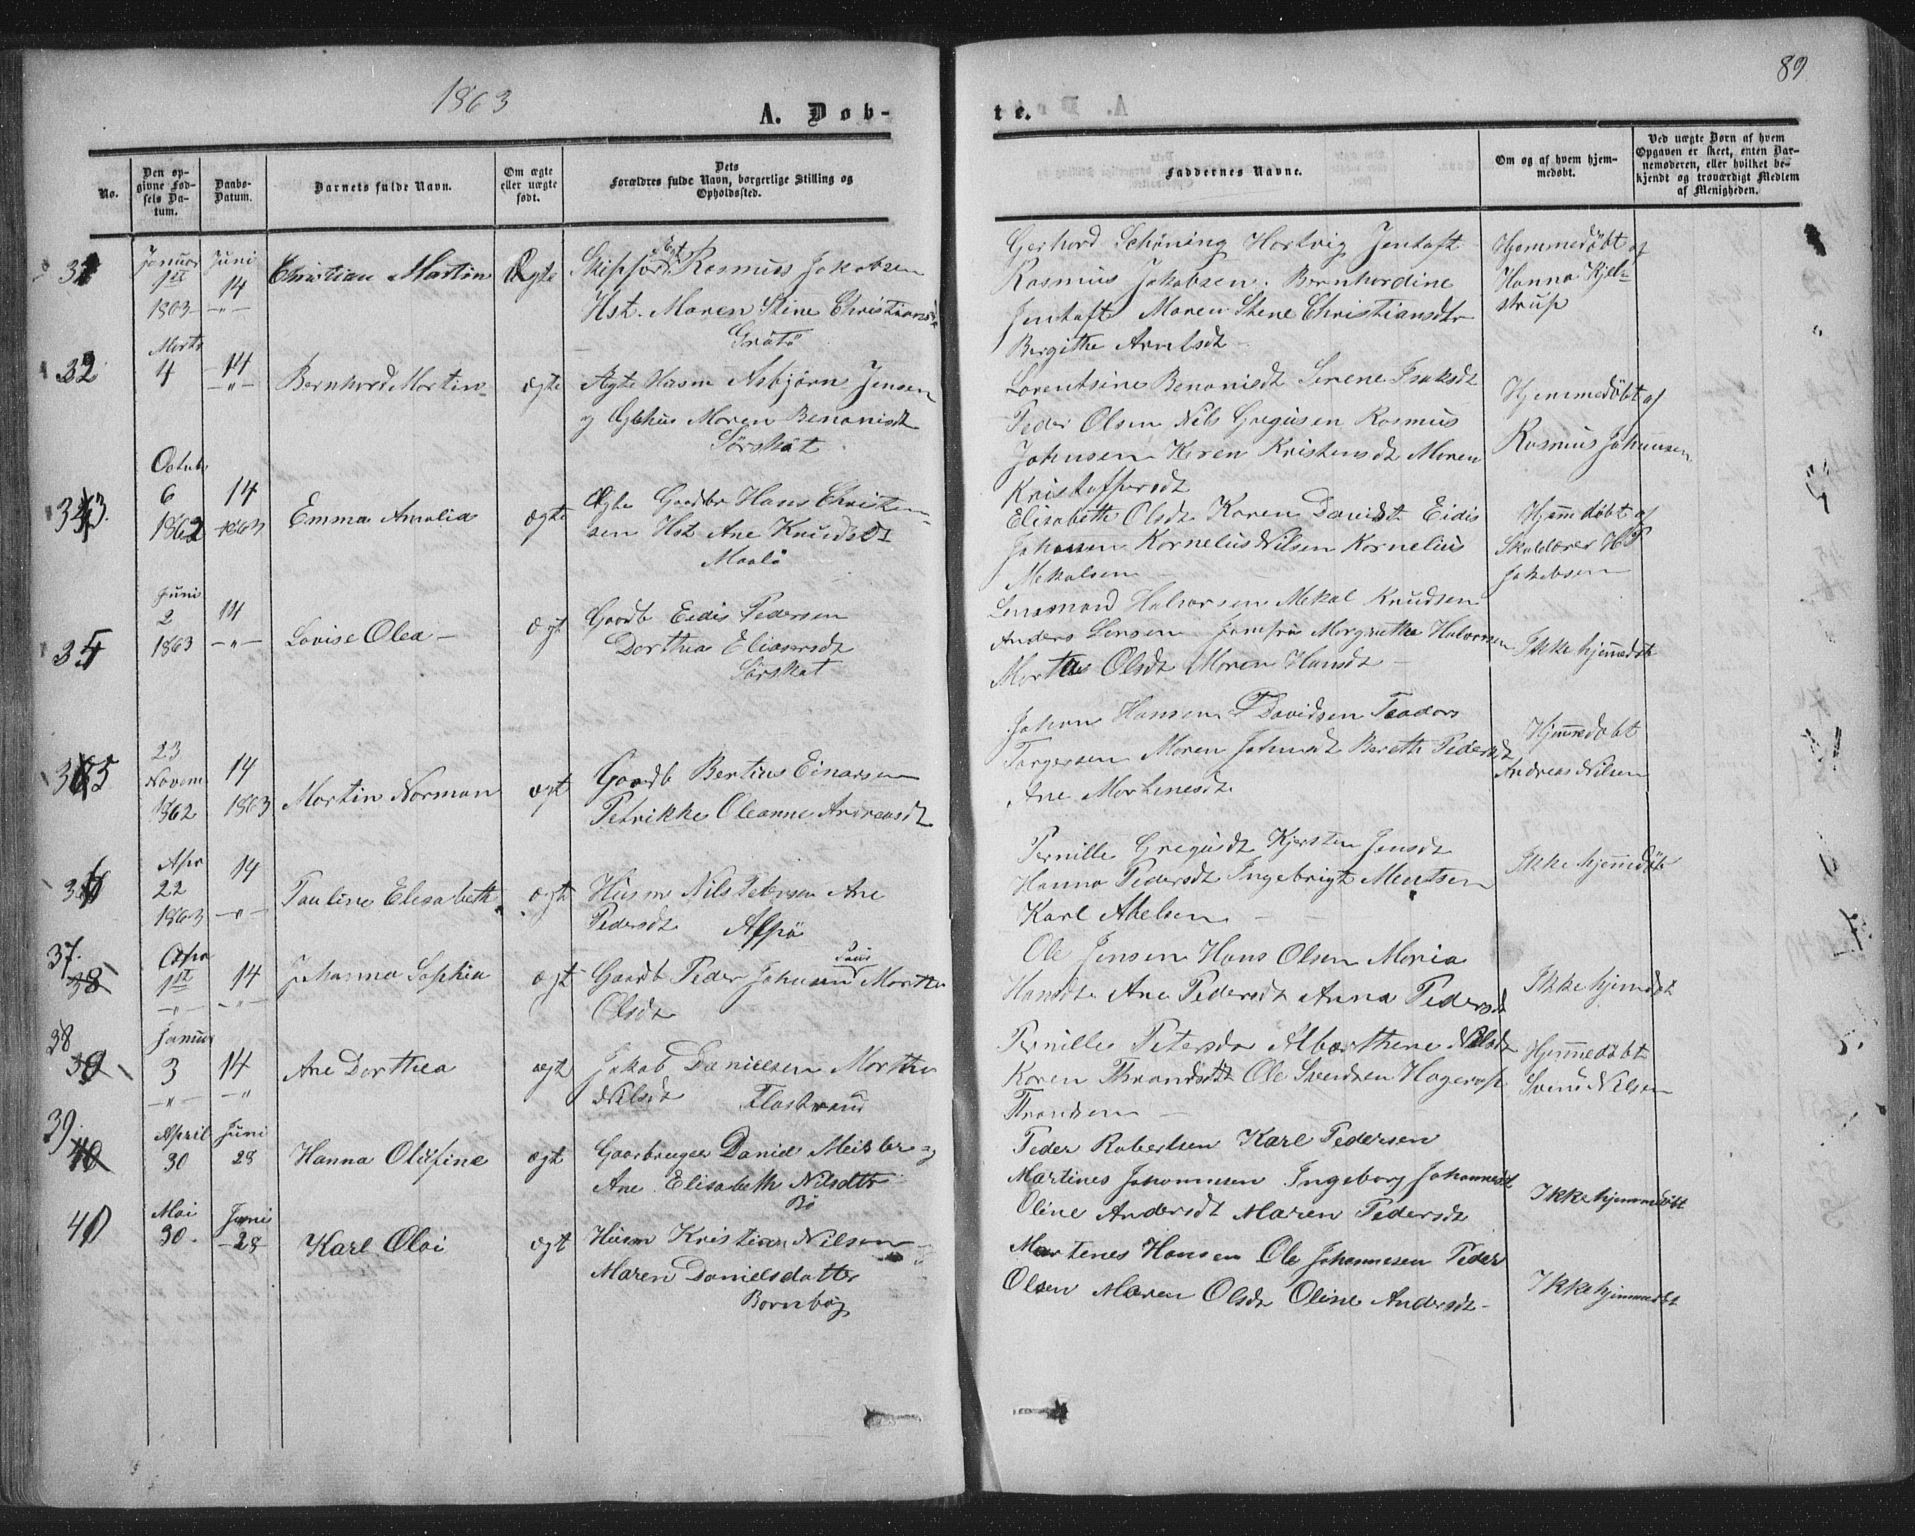 1863
89
A. Døb-
te.
No.
Den opgivne Fødsels Datum.
Daabs-Datum.
Barnets fulde Navn.
Om ægte eller uægte født.
Dets Forældres fulde Navn, borgerlige Stilling og Opholdssted.
Faddernes Navne.
Om og af hvem hjemmedøbt.
Ved uægte Børn af hvem Opgaven er skeet, enten Barnemoderen, eller hvilket bekjendt og troværdigt Medlem af Menigheden.
31
Januar 1ste 1863
Juni 14
Christian Martin
Ægte
Rasmus Jakobsen
Hst. Maren Stine Christiansd
Gerhord Schøning Hartvig Jentoft
Rasmus Jakobsen. Bernhordine
Jentoft Maren Stene Christiansdtr
Bergithe Arntsdt
Hjemmedøbt af
Hanna Kjel-
strup
32
Marts 4
14
Bernhord Mortin
ægte
Ægte Husm Asbjørn Jensen
og Maren Benonisdt
Sørskot
Lorentsine Benonisdt Serene Isaksdt
Peder Olsen Nils Gregusen Rasmus
Johnsen Karen Kristensdt Moren
Kristoffersdt
Hjemmedøbt af
Rasmus Johnsen
33
Octob 6 1862
14 1863
Emma Amalia
ægte
Ægte Gaardbr Hans Christen-
sen Hst Ane Knudsdt
Elisabeth Olsdt Karen Davidsdt Eidis
Johnsen Kornelius Nilsen Kornelius
Mekalsen
Hjemmedøbt af
Skolelærer
Jakobsen
34
Juni 2 1863
14
Lovise Olea
ægt
Gaardb Eidis Pedersen
Dorthea Eliasdt
Sørskot
Lensmand Halvorsen Mekal Knudsen
Anders Jensen Jomfru Morgrethe Halvorsen
Olsdt Moren Hansdt
Ikke hjemmedøbt
35
23 Novem 1862
14 1863
Mortin Normon
ægt
Gaardb Bertius Einarsen
Petrikke Oleanne Andreasdt
Johan Hansen Davidsen Teodors
Torgersen Moren Johnsdt Bereth Pedersdt
Ane Mortinesdt
Hjemmedøbt
Andreas Nilsen
36
Apr 22 1863
14
Pauline Elisabeth
ægt
Husm Nils Petersen Ane
Pedersdt
Pernille Gregusdt Kjersten Jensdt
Hanna Pedersdt Ingebrigt Mentsen
Karl Abelsen
Ikke hjemmedøbt
37. 38
Apr 1ste
14
Johanna Sophia
ægt
Gaardb Peder Johnsen Morthe
Olsdt
Ole Jensen Hans Olsen Moria
Hansdt Ane Pedersdt Anna Pedersdt
Ikke hjemdøbt
38 39
Januar 3
14
Ane Dorthea
ægt
Jakob Danielsen Morthe
Nilsdt
Pernille Petersdtr Alberthene Nilsdt
Koren Throndsdt Ole Svendsen
Throndsen
Hjemmedøbt
Nilsen
39. 40
April 30
Juni 28
Hanna Olufine
ægt
Gaardbruger Daniel Meisler og
Ane Elisabeth Nilsdtr
Bø
Peder Robertsen Karl Pedersen
Martines Johannesen Ingeborg Johannesdt
Oline Andersdt Maren Pedersdt
Ikke hjemmedøbt
40
Mai 30.
Juni 28
Karl Olai
ægt
Husm Kristian Nilsen
Maren Danielsdatter
Martenes Hansen Ole Johannesen Peder
Olsen Maren Olsdt Oline Andersdt
Ikke hjemmedøbt